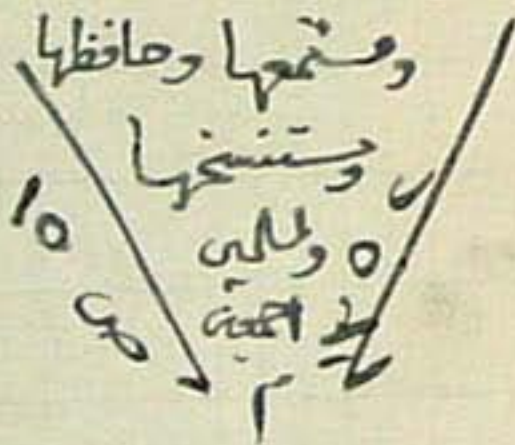 ومستمعها وحافظها
ومستنسخها
وللمسلمين
اجمعين
م